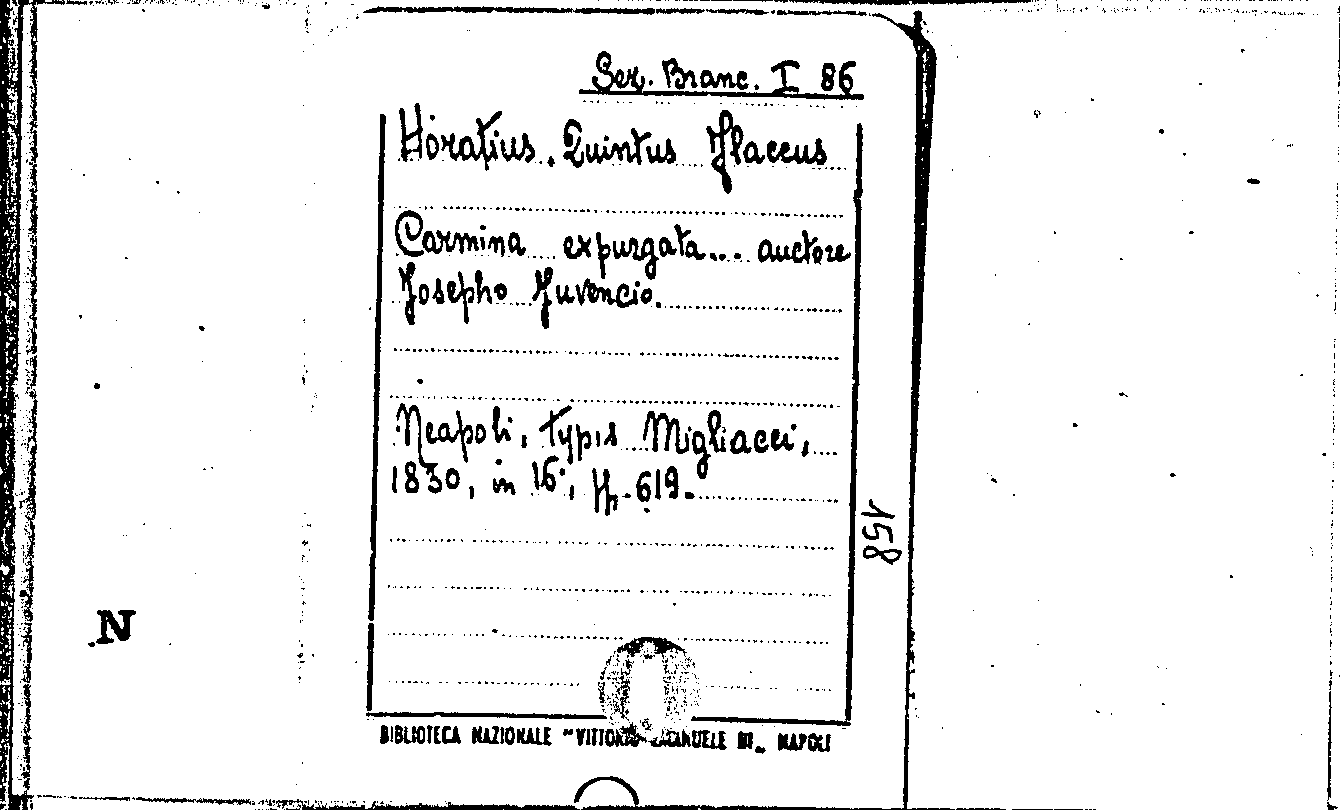 Sez. Branc. I 86
Horatius. Quintus Flaccus
Carmina expurgata... auctore
Josepho Juvencio.
Neapoli, typis Migliacci,
1830, in 16°, pp. 619.
158
N
BIBLIOTECA NAZIONALE "VITTORIO EMANUELE III„ NAPOLI